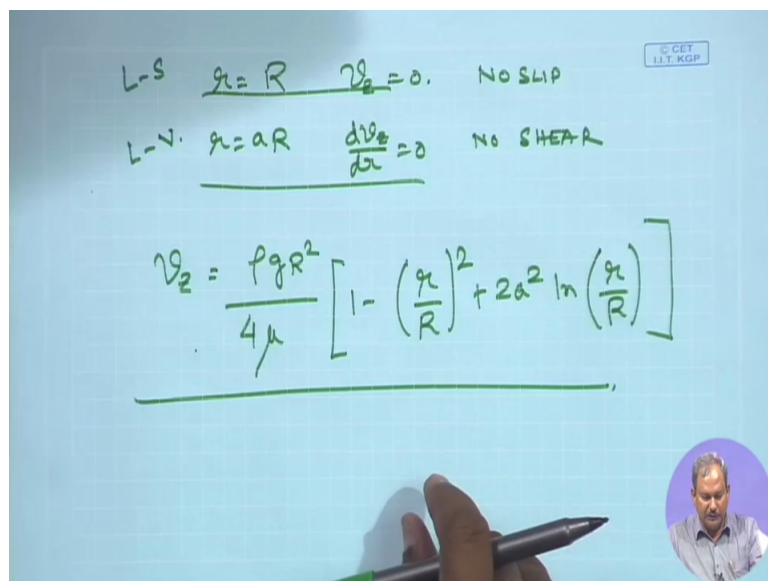 © CET
I.I.T. KGP
L-S r = R v_z = 0. NO SLIP
L-V. r = aR dv_z/dr = 0 NO SHEAR
v_z = ρgR²/4μ [1 - (r/R)² + 2a² ln (r/R)]